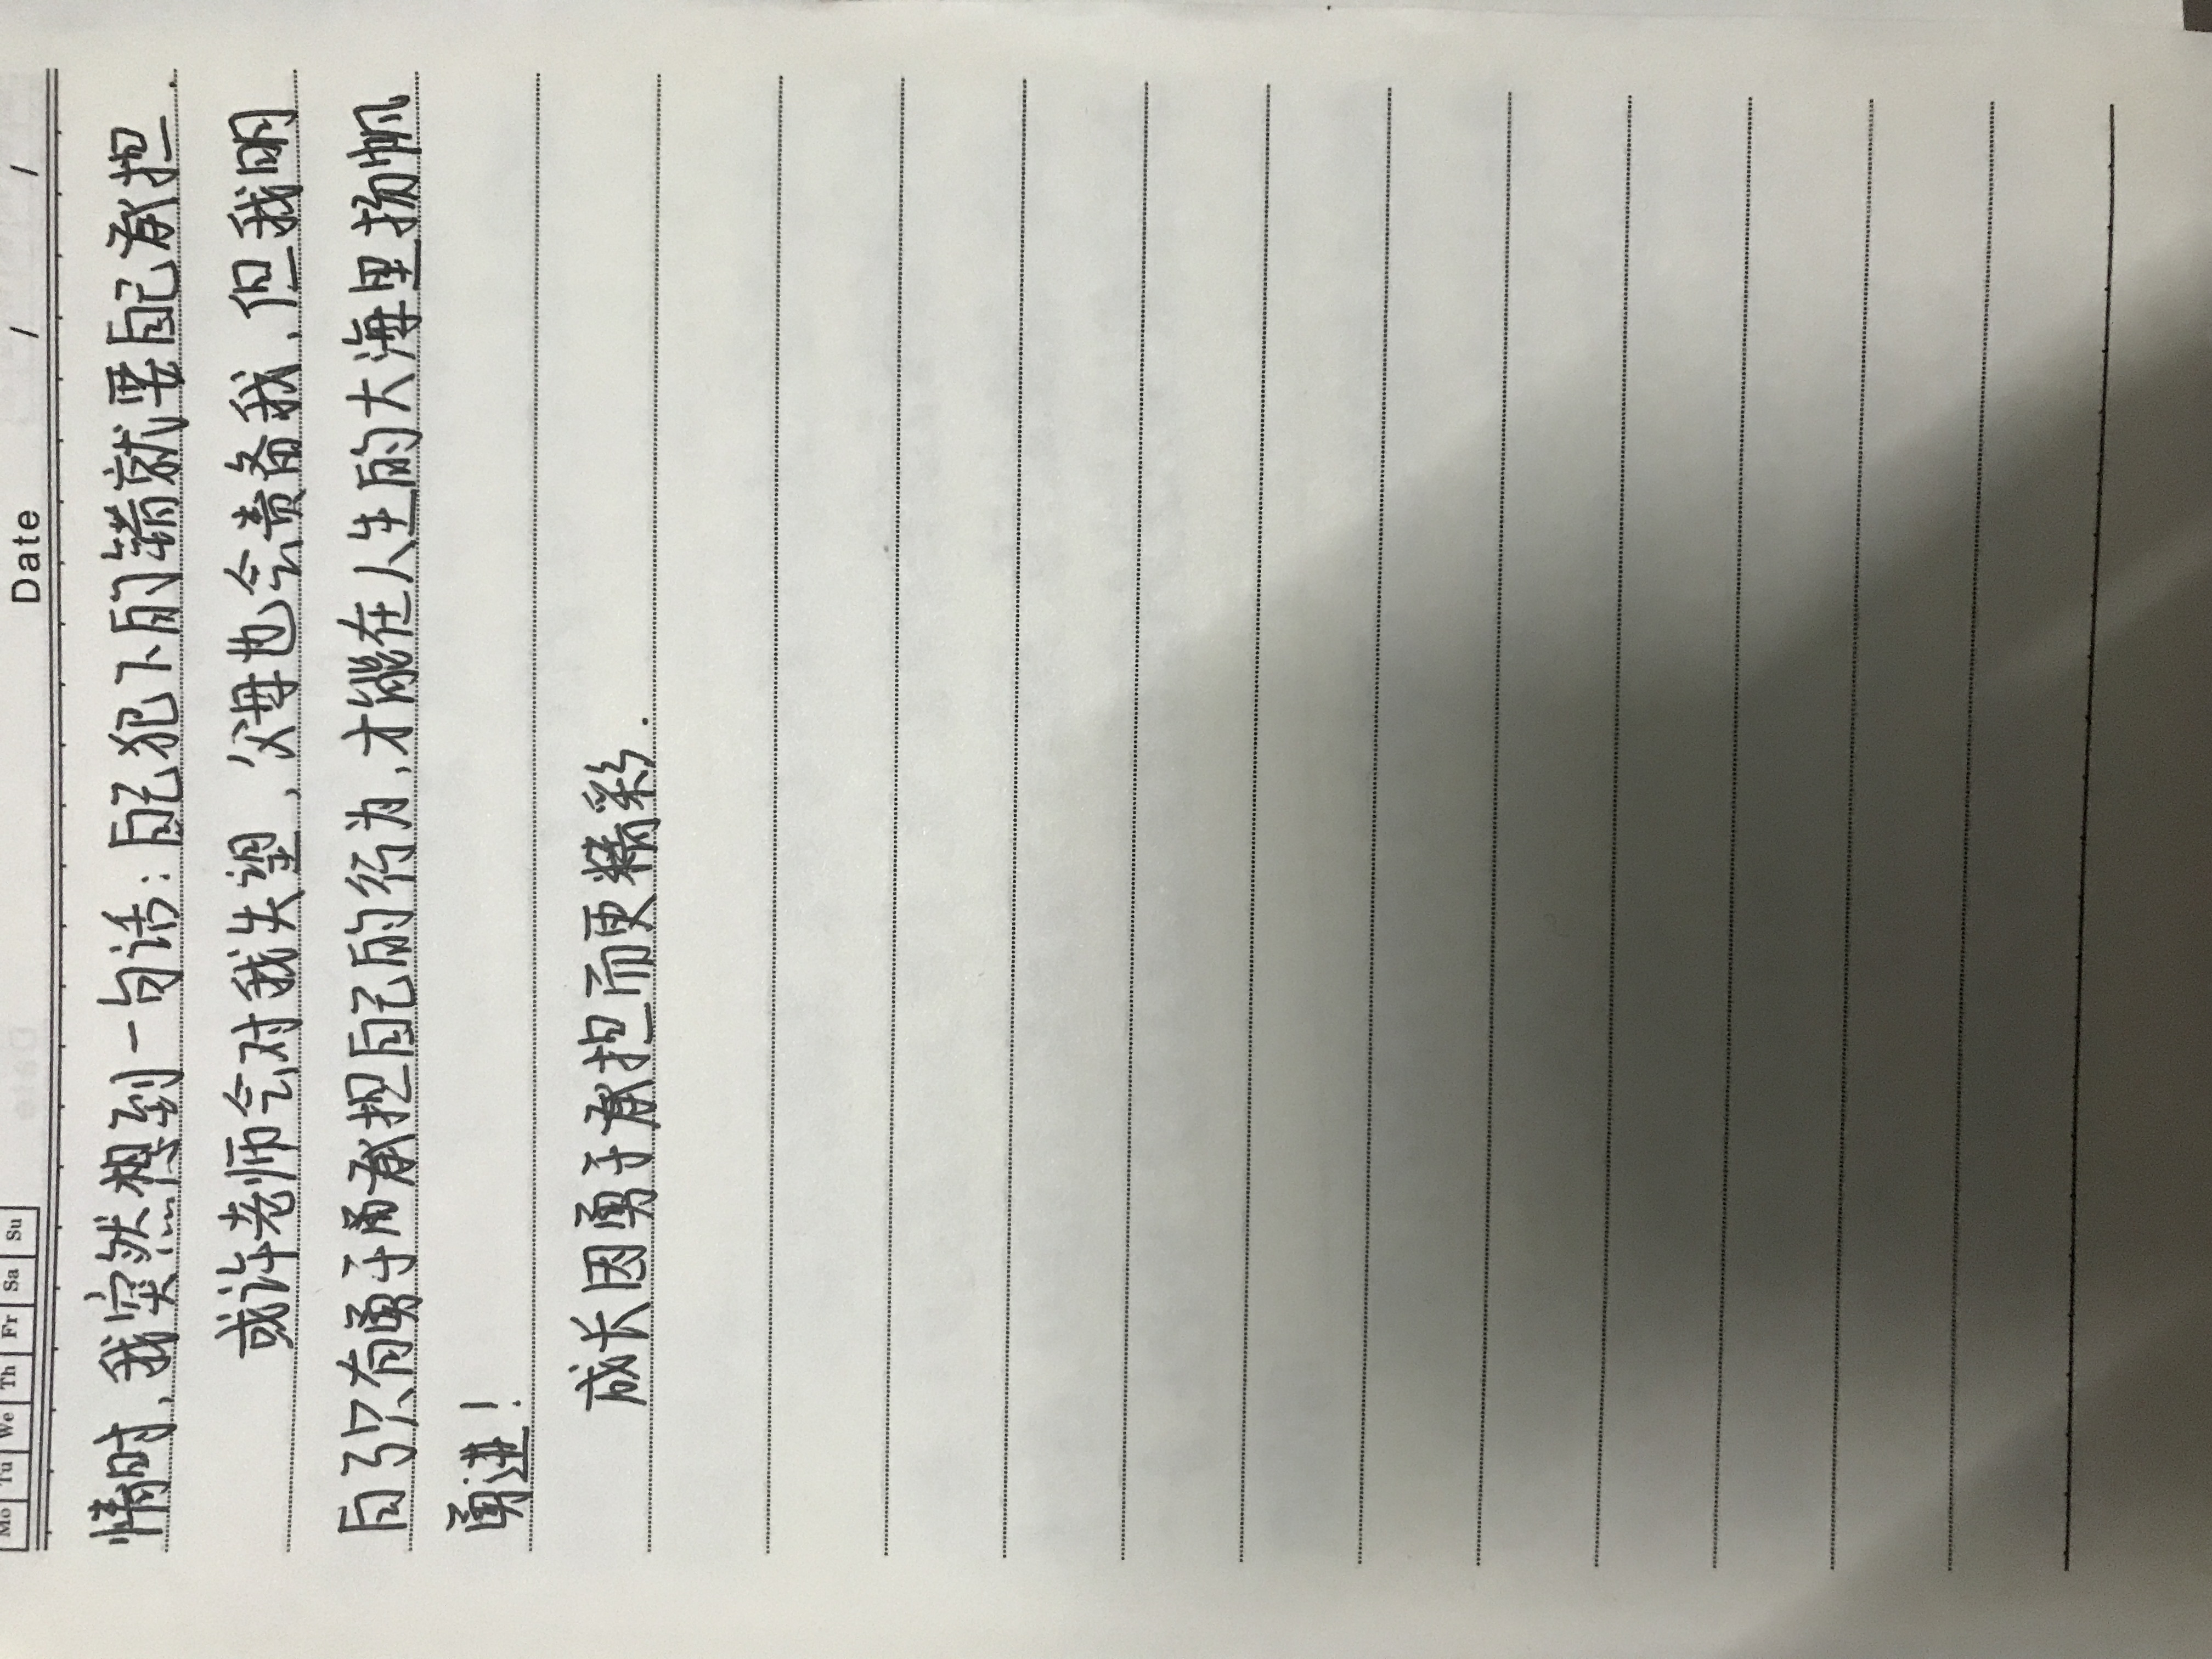 Mo Tu We Th Fr Sa Su Date / /
情时，我突然想到一句话：自己犯下的错就要自己承担.
或许老师会对我失望，父母也会责备我，但我明
白了只有勇于承担自己的行为，才能在人生的大海里扬帆
勇进！
成长因勇于承担而更精彩.